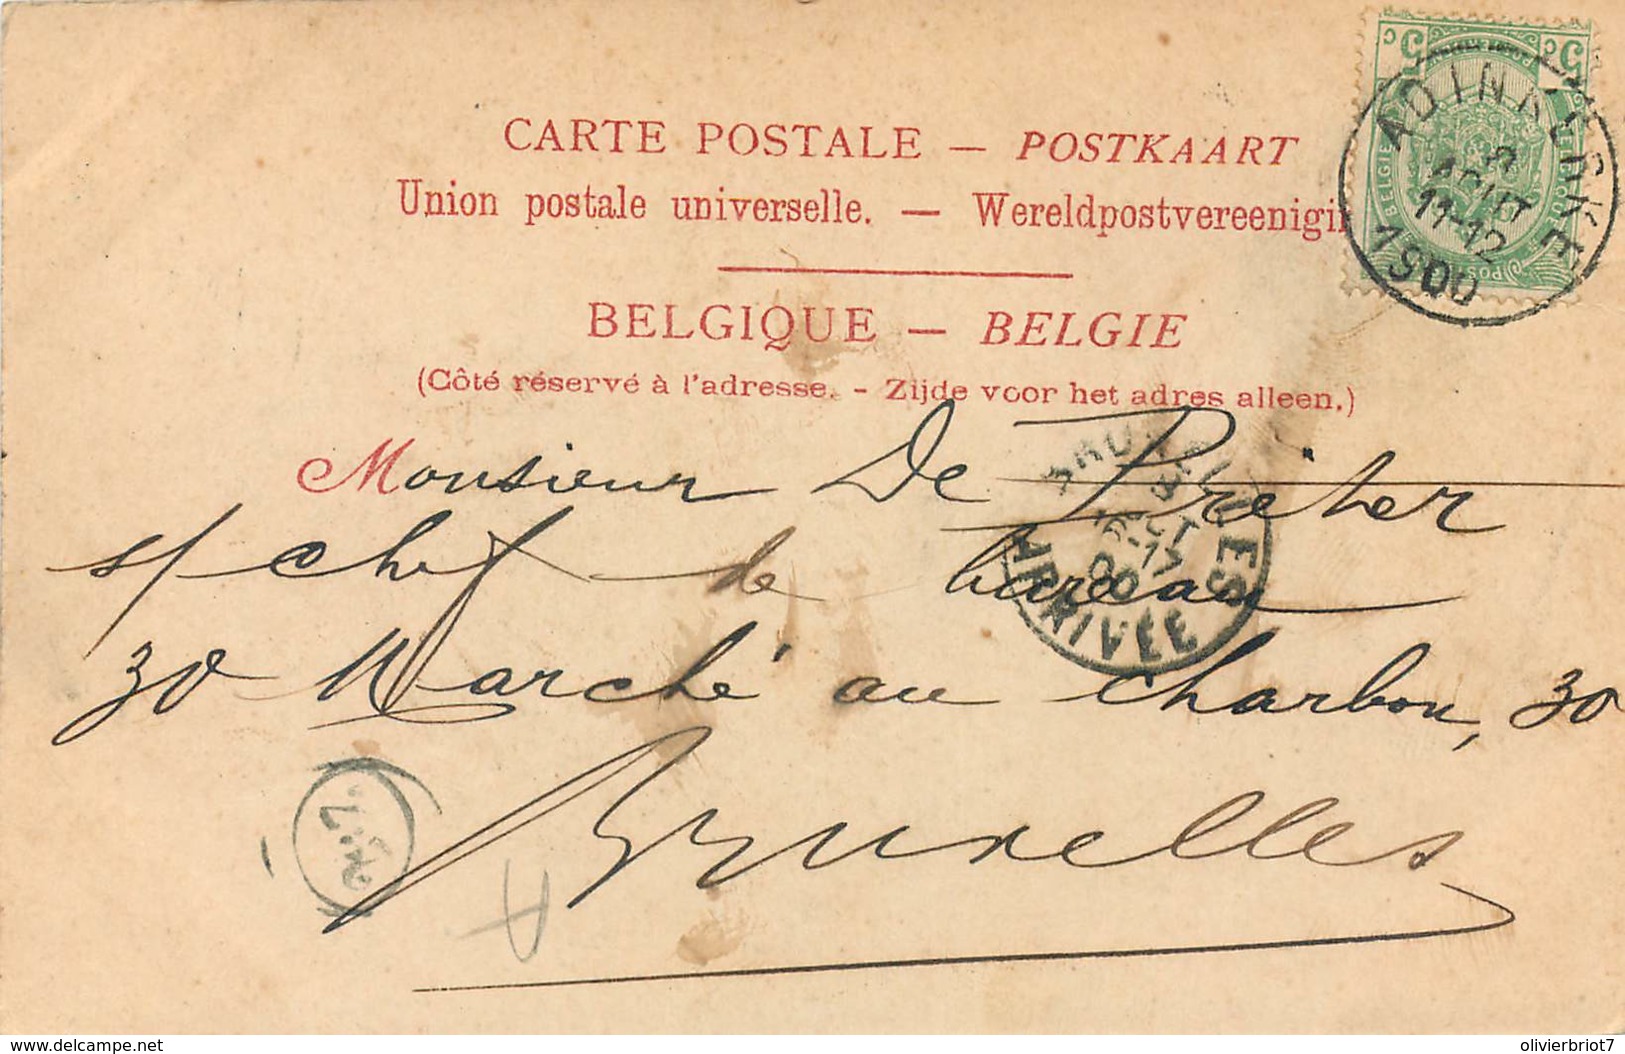 CARTE POSTALE — POSTKAART
Union postale universelle. — Wereldpostvereenigi
BELGIQUE — BELGIE
(Côté réservé à l'adresse. - Zijde voor het adres alleen.)
Monsieur De Preter
s/chef de bureau
30 Marché au Charbon, 30
Bruxelles
5 c 5 c
BELGIE BELGIQUE
POSTES
ADINKERKE
AOUT
11-12
1900
BRUXELLES
17
ARRIVÉE
delcampe.net
olivierbriot7